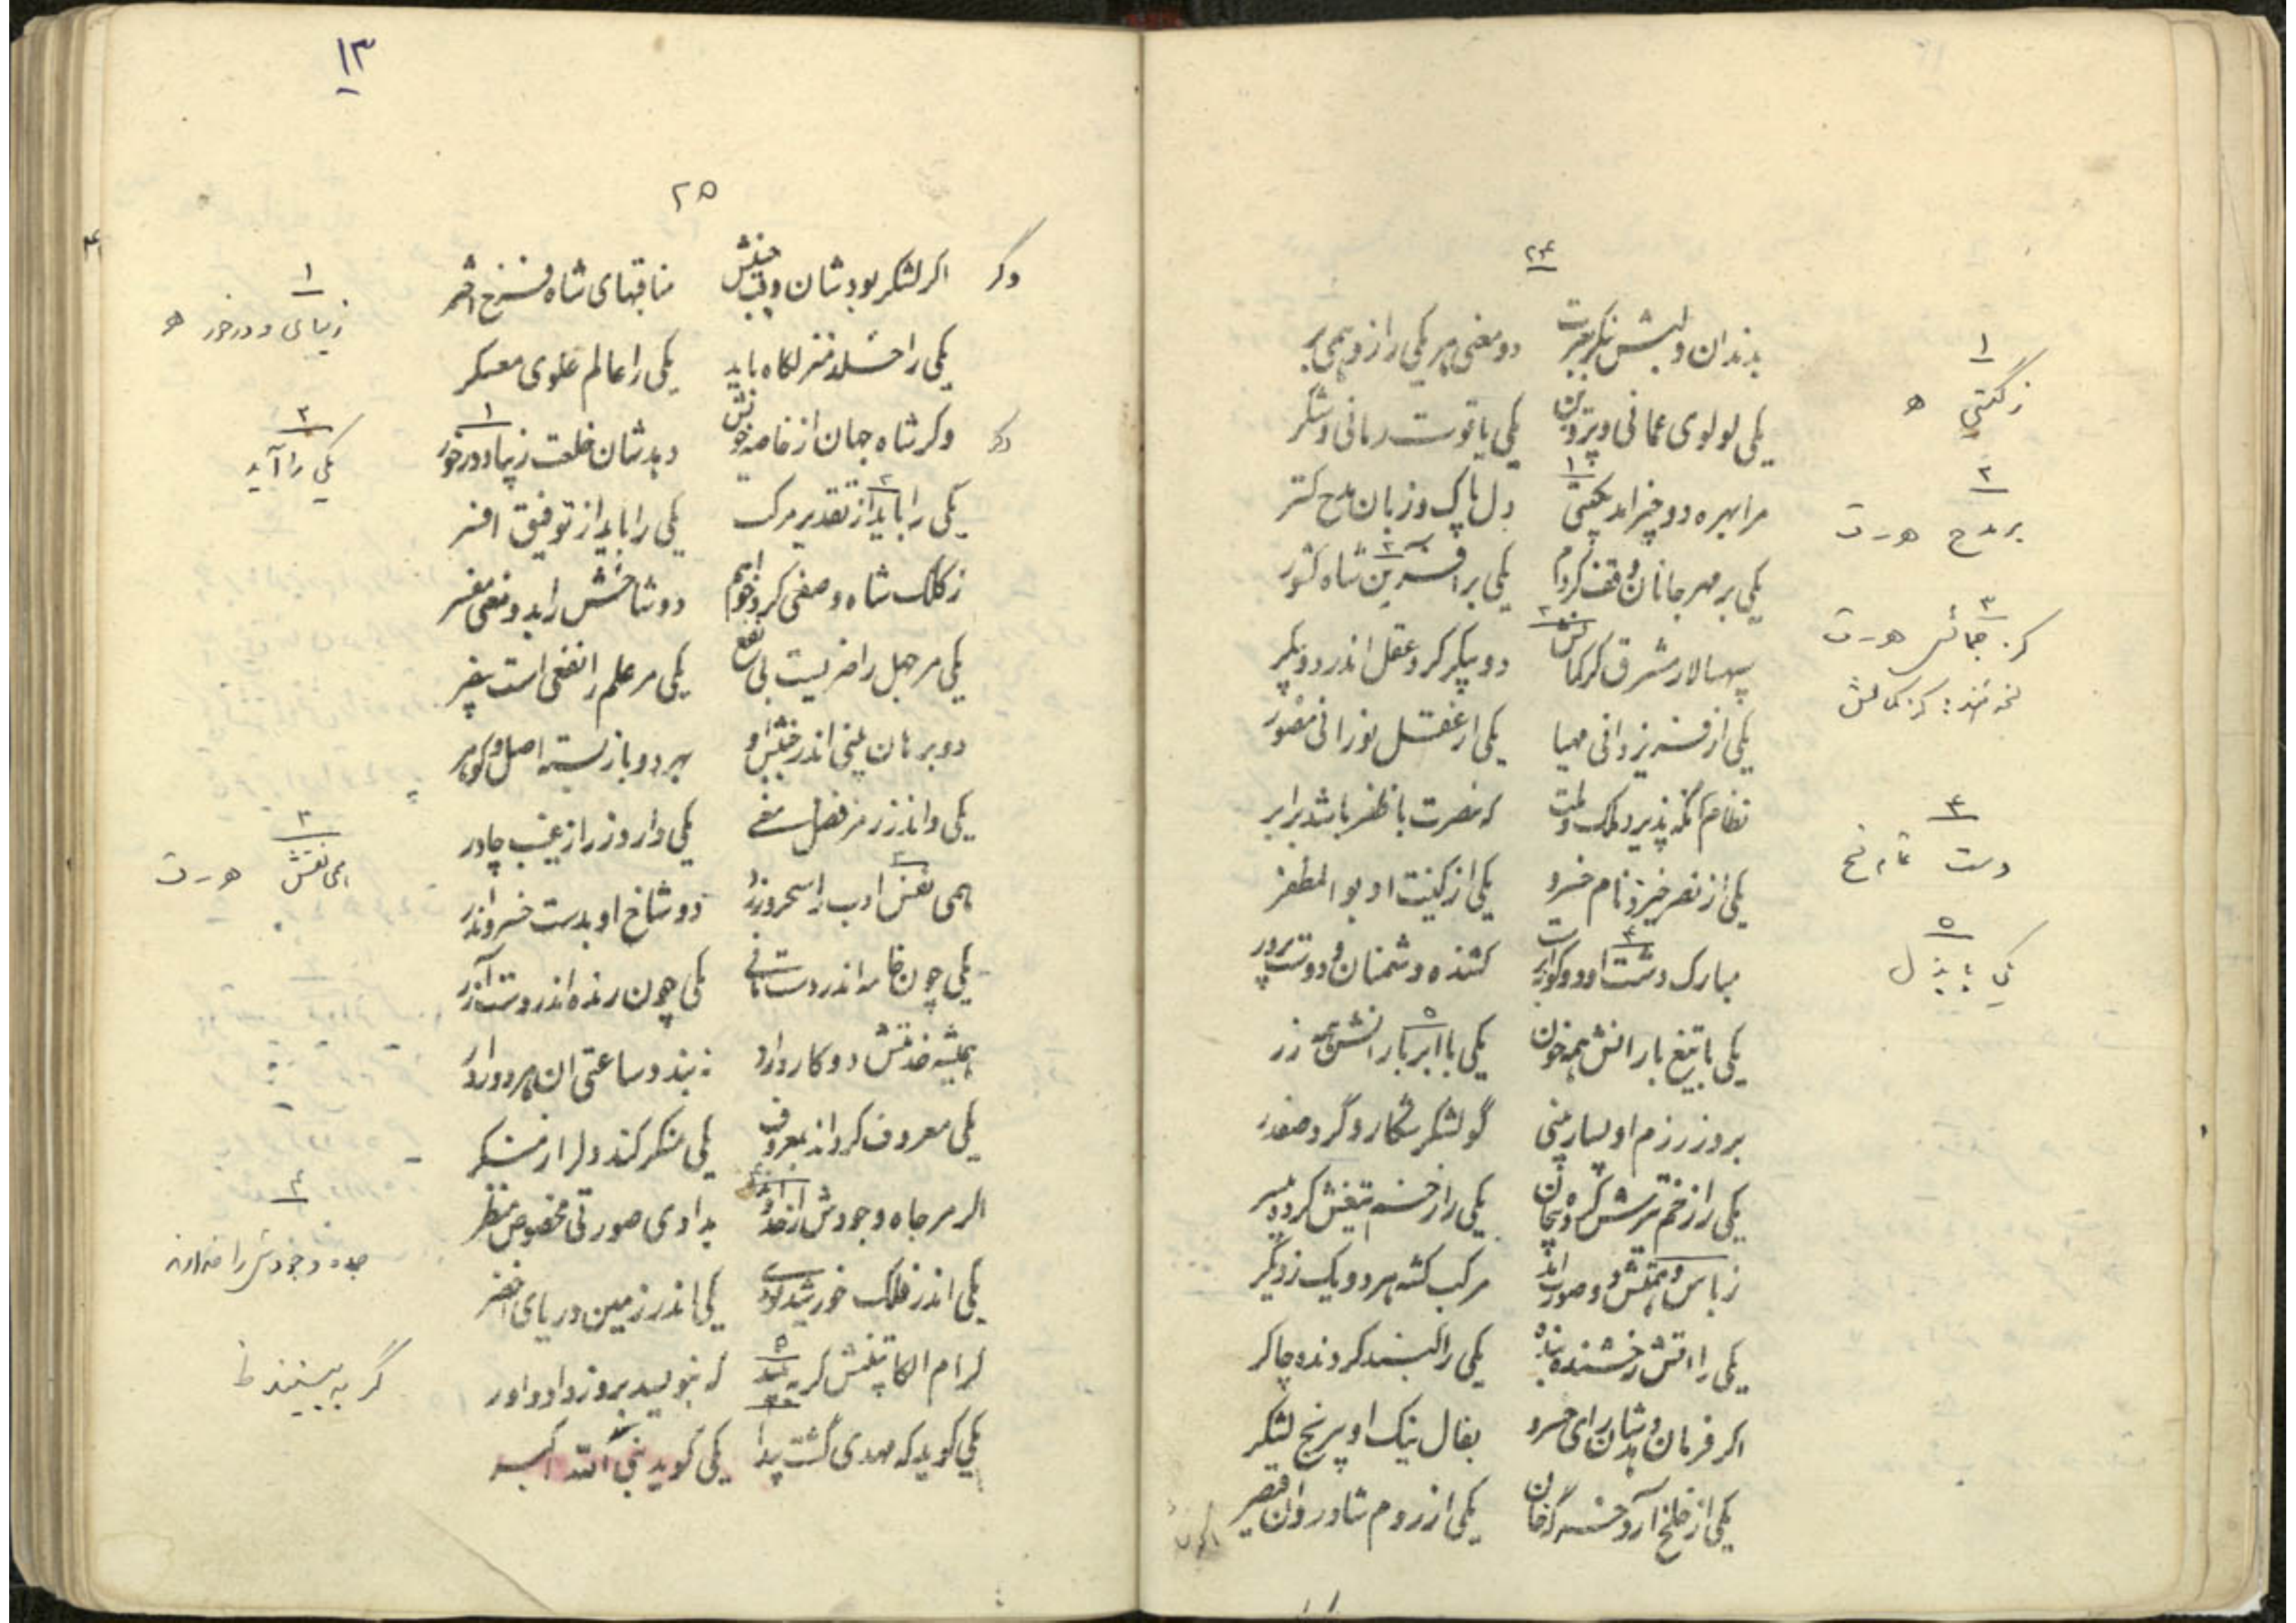 ۲۴
بدندان و لبش بنگر بعبرت دو معنی هر یکی را زو همی بر
یکی لولوی عمانی و پروین یکی یاقوت رمانی و شکر
مرا بهره دو چیز آمد بگیتی دل پاک و زبان مدح گستر
یکی بر مهر جانان وقف کردم یکی بر آفرین شاه کشور
سپهسالار مشرق کز کمالش دو پیکر کرد عقل اندر دو پیکر
یکی از فر یزدانی مهیا یکی از عقل نورانی مصور
نظام آنگه پذیرد ملک و ملت که نصرت با ظفر باشد برابر
یکی از نصر خیزد نام خسرو یکی از کنیت او بوالمظفر
مبارک دشت او دو گوا برکشنده دشمنان و دوست پرور
یکی با تیغ بارانش همه خون یکی با ابر بارانش همه زر
بروز رزم او بسیار بینی گو لشکر شکار و گرد صفدر
یکی را زخم تیرش کرده بیجان یکی را زخم تیغش کرده بی سر
ز باس و همتش دو صورت اند مرکب گشته هر دو یک ز دیگر
یکی را آتش رخشنده بنده یکی را گنبد گردنده چاکر
اگر فرمان دهدشان رای خسرو بفال نیک او بر نیج لشکر
یکی از خلخ آرد خسرو خان یکی از روم شادروان قیصر
۱
زگیتی ه
۲
بر مدح ه ر ت
۳
کز جمالش ه ر ت
کز کمالش
۴
دست تمام نسخ
۵
یکی با بذل
۱۳
۲۵
وگر
اگر لشکر بود شان وقت جنبش مناقبهای شاه فرخ اختر
یکی را خلد منزلگاه باید یکی را عالم علوی معسکر
وگر شاه جهان از خاصه خویش دهدشان خلعت زیبا و درخور
یکی را باید از تقدیر مرکب یکی را باید از توفیق افسر
ز کلک شاه وصفی کرد خواهم دو شاخش را بدو معنی مفسر
یکی مر جهل را ضریست بی نفع یکی مر علم را نفعی است بی ضر
دو برهان بینی اندر جنبش او بهر دو باز بسته اصل و گوهر
یکی داند ز رمز فضل معنی یکی دارد ز راز غیب چادر
همی نقش ادب را سحر ورزد دو شاخ او بدست خسرو اندر
یکی چون خامه اندر دست مانی یکی چون رنده اندر دست آزر
همیشه خدمتش دو کار دارد نه بندد ساعتی آن هر دو را در
یکی معروف گرداند بمعروف یکی منکر کند دل را ز منکر
اگر مر جاه و جودش را خداوند بدادی صورتی مخصوص منظر
یکی اندر فلک خورشید بودی یکی اندر زمین دریای اخضر
کرام الکاتبینش گر به بیند که بنویسد بروز داد داور
یکی گوید که مهدی گشت پیدا یکی گوید نبی الله اکبر
۱
زیبای و درخور ه
۲
یکی را آید
۳
همی نقش ه ر ت
۴
جود و وجودش را خداوند
گر به بینند ط